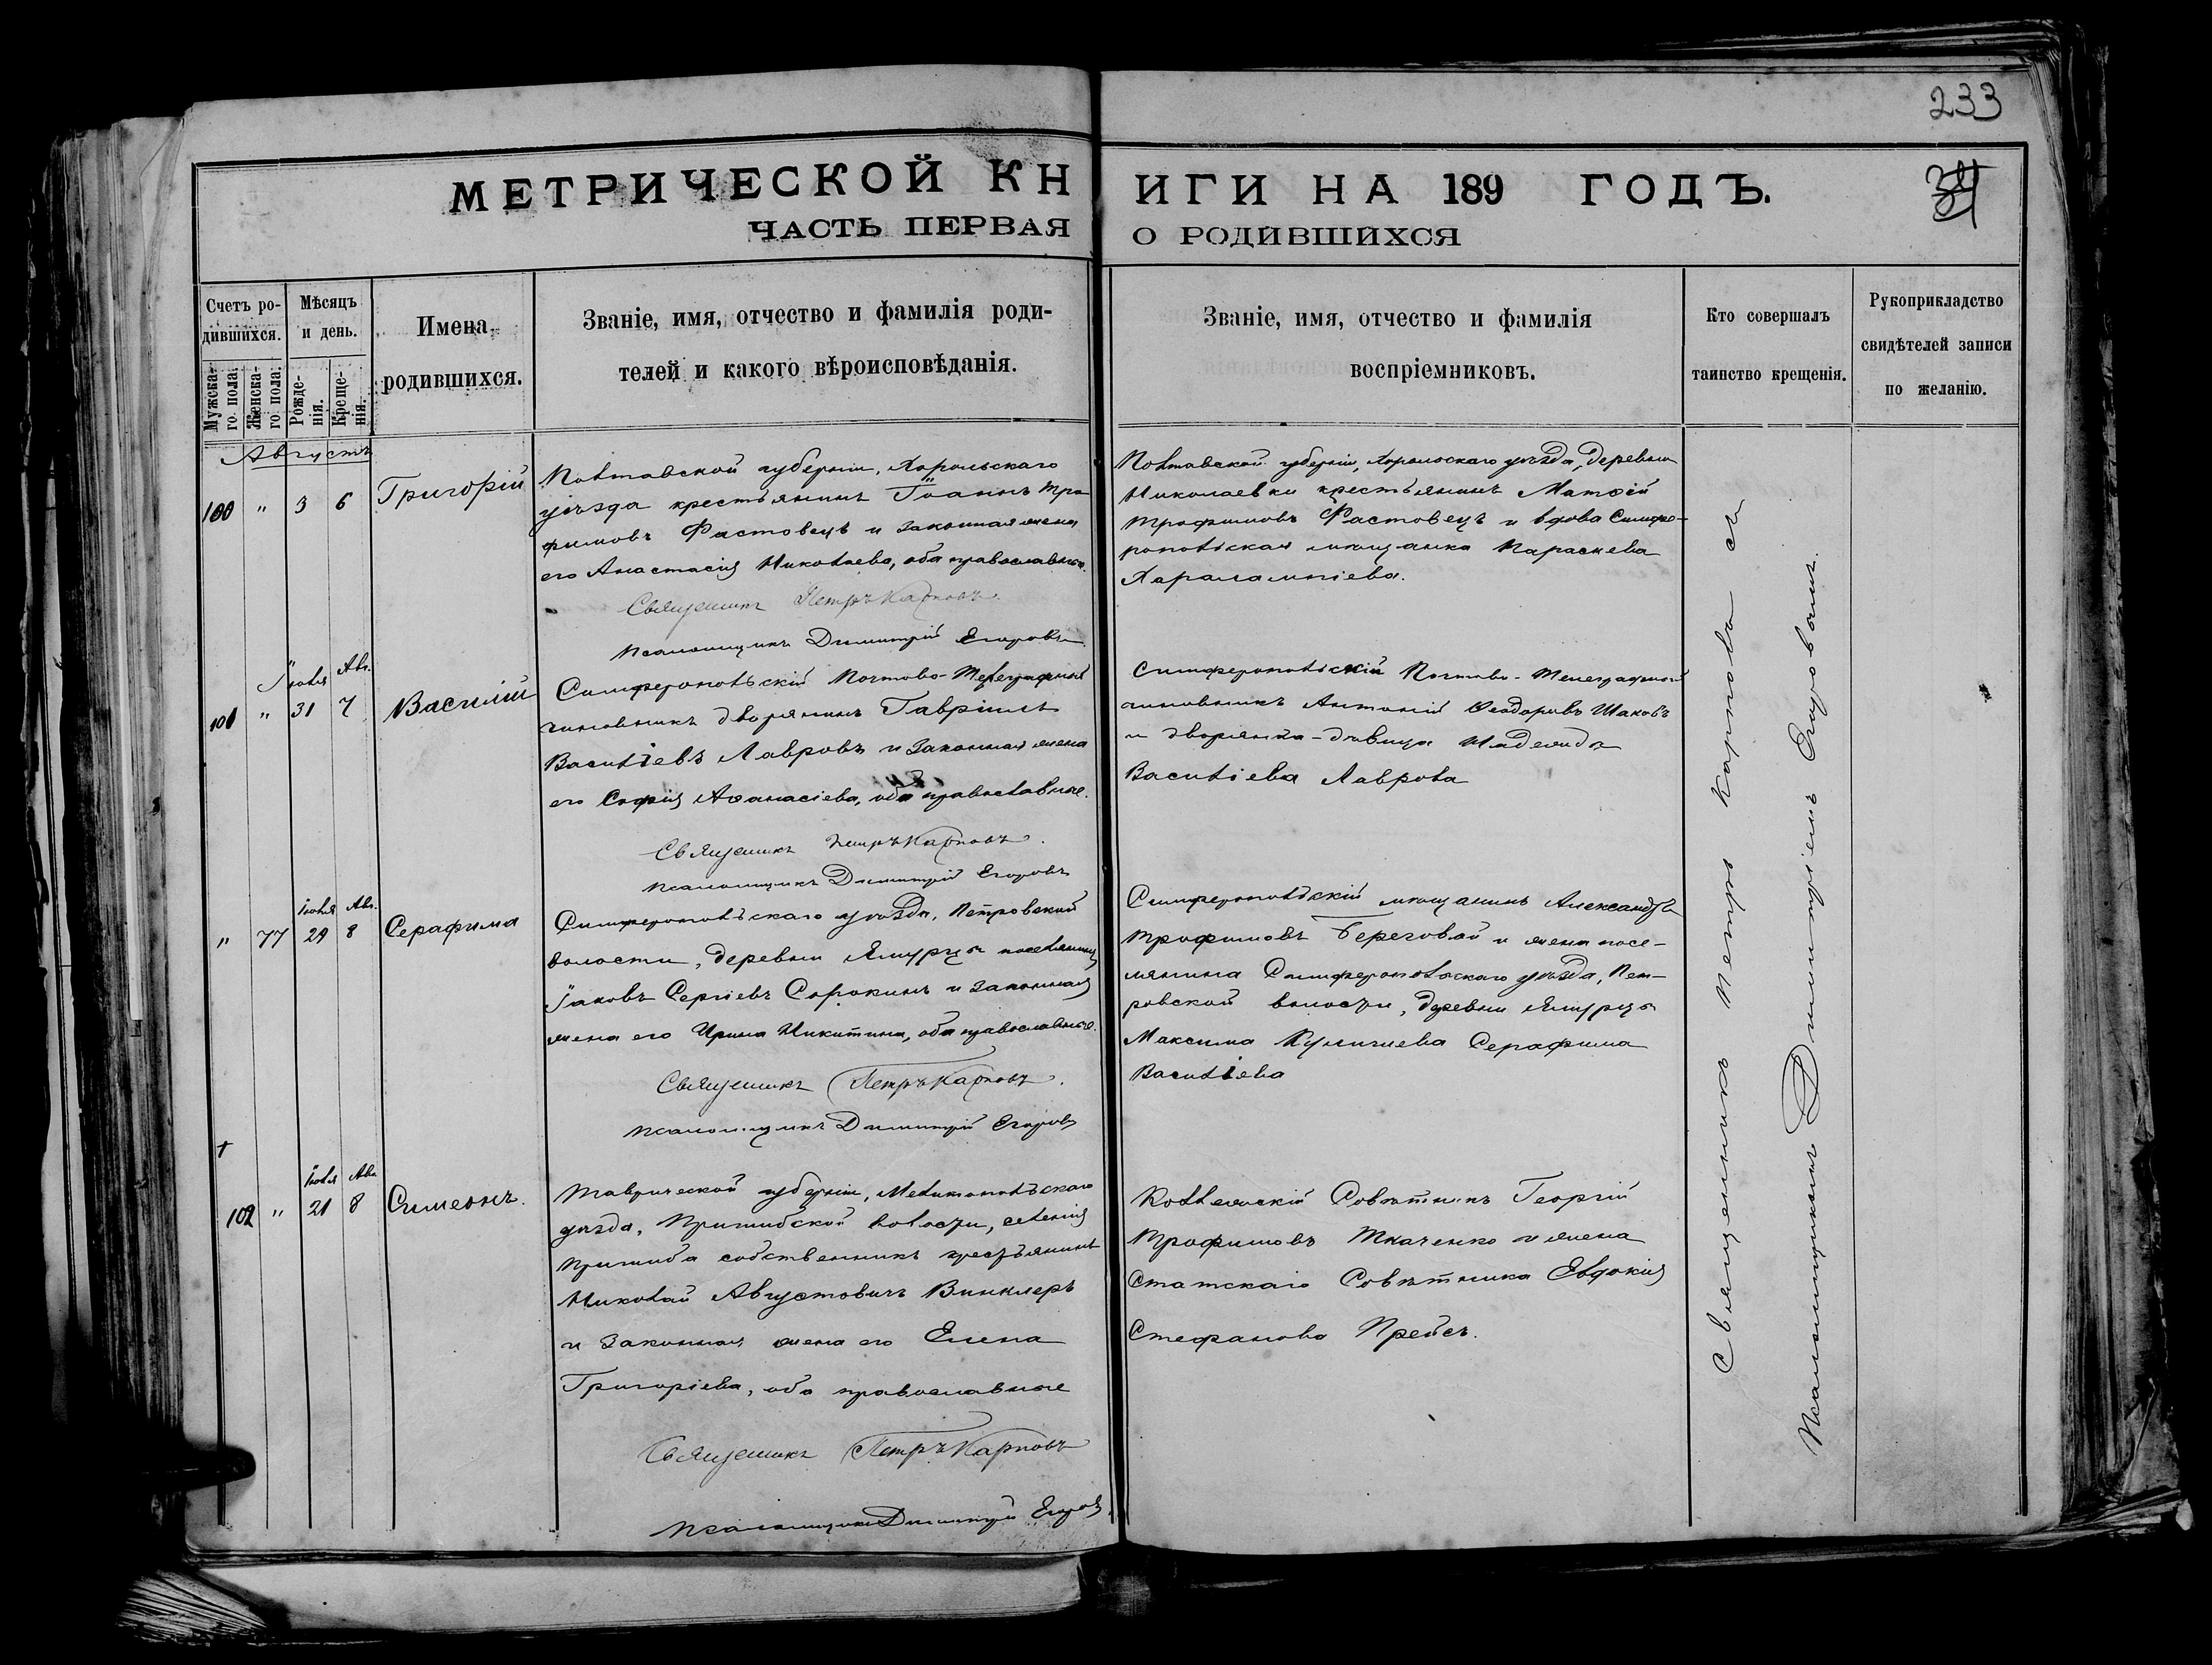 233
МЕТРИЧЕСКОЙ КНИГИ НА 189 ГОДЪ.
ЧАСТЬ ПЕРВАЯ О РОДИВШИХСЯ
Счетъ ро-
дившихся.
Мужска-
го пола.
Женска-
го пола.
Мѣсяцъ
и день.
Рожде-
нія.
Креще-
нія.
Имена
родившихся.
Званіе, имя, отчество и фамилія роди-
телей и какого вѣроисповѣданія.
Званіе, имя, отчество и фамилія
воспріемниковъ.
Кто совершалъ
таинство крещенія.
Рукоприкладство
свидѣтелей записи
по желанію.
Августъ
100 " 3 6 Григорій
Полтавской губерніи, Хорольскаго
уѣзда крестьянинъ Іоаннъ Тро
фимовъ Фастовецъ и законная жена
его Анастасія Николаева, оба православные.
Священникъ Петръ Карповъ.
Псаломщикъ Димитрій Егоровъ
Полтавской губерніи, Хорольскаго уѣзда, деревни
Николаевки крестьянинъ Матѳій
Трофимовъ Фастовецъ и вдова Симфе-
ропольская мѣщанка Параскева
Харалампіева.
Іюля Авг.
101 " 31 7 Василій
Симферопольскій Почтово-Телеграфный
чиновникъ дворянинъ Гавріилъ
Василіевъ Лавровъ и законная жена
его Софія Аѳанасіева, оба православные.
Священникъ Петръ Карповъ.
Псаломщикъ Димитрій Егоровъ
Симферопольскій Почтово-Телеграфный
чиновникъ Антоній Ѳеодоровъ Шаковъ
и дворянка-дѣвица Надежда
Василіева Лаврова
Іюля Авг.
" 77 29 8 Серафима
Симферопольскаго уѣзда, Петровской
волости, деревни Ямурцы поселянинъ
Іаковъ Сергіевъ Сорокинъ и законная
жена его Ирина Никитина, оба православные.
Священникъ Петръ Карповъ.
Псаломщикъ Димитрій Егоровъ
Симферопольскій мѣщанинъ Александръ
Трофимовъ Береговой и жена посе-
лянина Симферопольскаго уѣзда, Пет-
ровской волости, деревни Ямурцы
Максима Куличиева Серафима
Василіева
†
Іюля Авг.
102 " 21 8 Симеонъ.
Таврической губерніи, Мелитопольскаго
уѣзда, Пришибской волости, селенія
Пришиба собственникъ крестьянинъ
Николай Августовичъ Винклеръ
и законная жена его Елена
Григоріева, оба православные
Священникъ Петръ Карповъ
Псаломщикъ Димитрій Егоровъ
Коллежскій Совѣтникъ Георгій
Трофимовъ Ткаченко и жена
Статскаго Совѣтника Евдокія
Стефанова Прейсъ.
Священникъ Петръ Карповъ съ
Псаломщикомъ Димитріемъ Егоровымъ.